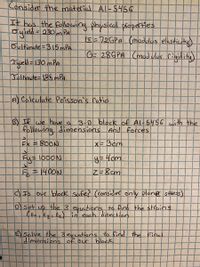 Consider the material Al-5456
It has the following physical properties
σyield = 230 MPa
E = 72 GPa (modulus elasticity)
σultimate = 315 MPa
G = 28 GPa (modulus rigidity)
τyield = 130 MPa
τultimate = 185 MPa
A) Calculate Poisson's ratio
B) If we have a 3-D block of Al-5456 with the
following dimensions and Forces
Fx = 800N x = 3cm
Fy = 1000N y = 4cm
Fz = 1400N z = 8cm
C) Is our block safe? (consider only planer stress)
D) Set up the 3 equations to find the strains
(εx, εy, εz) in each direction
E) Solve the 3 equations to find the final
dimensions of our block